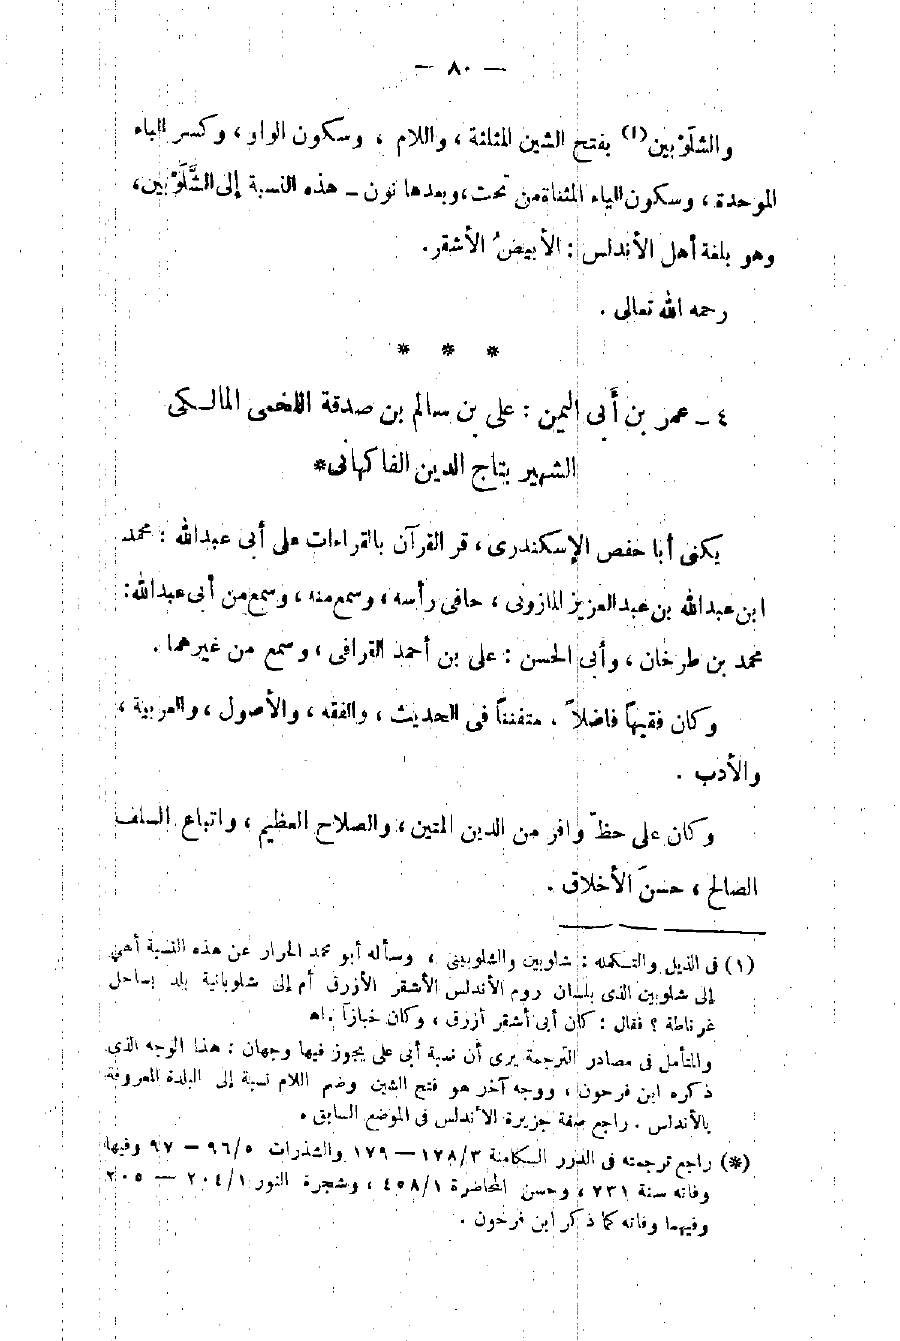 — ٨٠ —
والشلَوْبين(١) بفتح الشين المثلثة ، واللام ، وسكون الواو ، وكسر الباء
الموحدة ، وسكون الياء المثناة من تحت ، وبعدها نون ــ هذه النسبة إلى الشَّلَوْبين ،
وهو بلغة أهل الأندلس : الأبيضُ الأشقر .
رحمه الله تعالى .
* * *
٤ ــ عمر بن أَبي اليمن : على بن سالم بن صدقة اللخمى المالـكى
الشهير بتاج الدين الفاكهانى*
يكنى أبا حفص الإسكندرى ، قر القرآن بالقراءات على أبى عبدالله : محمد
ابن عبدالله بن عبدالعزيز المازونى ، حافى رأسه ، وسمع منه ، وسمع من أبى عبدالله :
محمد بن طرخان ، وأبى الحسن : على بن أحمد القرافى ، وسمع من غيرهما .
وكان فقيهاً فاضلاً . متفنناً فى الحديث ، والفقه ، والأصول ، والعربية ،
والأدب .
وكان على حظّ وافر من الدين المتين ، والصلاح العظيم ، واتباع السلف
الصالح ، حسنَ الأخلاق .
(١) فى الذيل والتـكمله : شلوبين والشلوبينى ، وسأله أبو محمد الحرار عن هذه النسبة أهى
إلى شلوبين الذى بلسان روم الأندلس الأشقر الأزرق أم إلى شلوبانية بلد بساحل
غرناطة ؟ فقال : كان أبى أشقر أزرق ، وكان خبازآ . اه
والمتأمل فى مصادر الترجمة يرى أن نسبة أبى على يجوز فيها وجهان : هذا الوجه الذى
ذكره ابن فرحون ، ووجه آخر هو فتح الشين وضم اللام نسبة إلى البلدة المعروفة
بالأندلس . راجع صفة جزيرة الأندلس فى الموضع السابق .
(*) راجع ترجمته فى الدرر السكامنة ١٧٨/٣ — ١٧٩ والشذرات ٩٦/٥ — ٩٧ وفيها
وفاته سنة ٧٣١ ، وحسن المحاضرة ٤٥٨/١ ، وشجرة النور ٢٠٤/١ — ٢٠٥
وفيهما وفاته كما ذكر ابن فرحون .